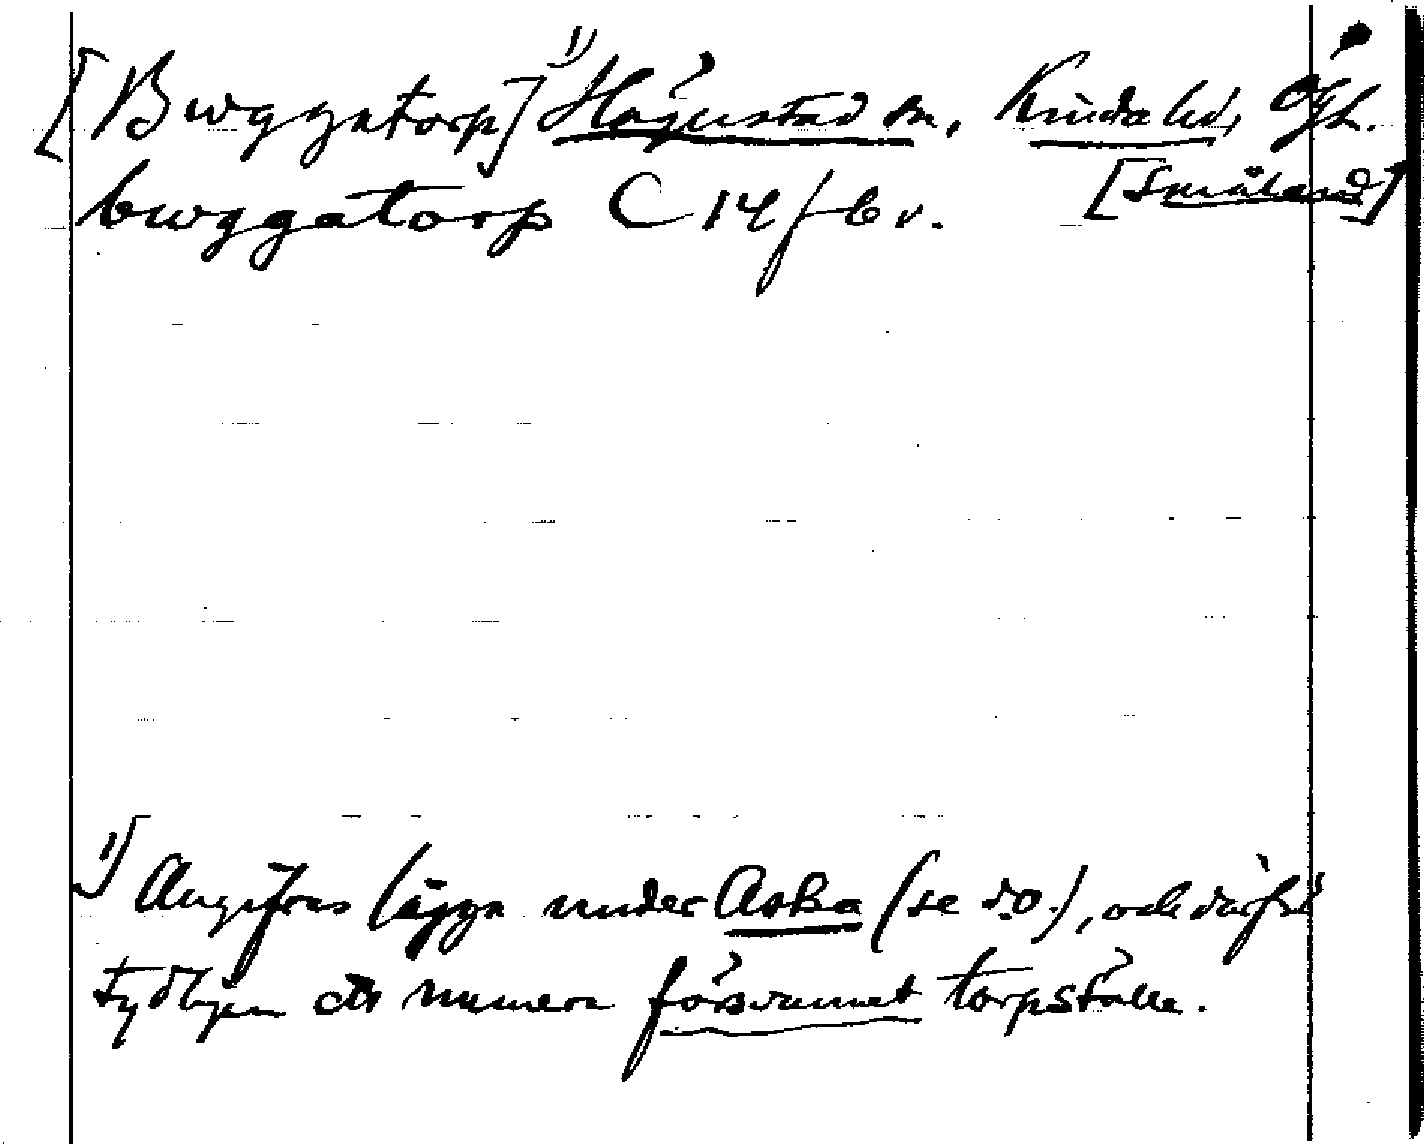 [Bwggatorp]¹⁾ Hägerstad sn, Kinda hd, Ögtl.
bwggatorp C 14 f 6 v. [Småland]
¹⁾ Angifves lägga under Aska (se d.o.), och därför
tydligen ett numera försvunnet torpställe.